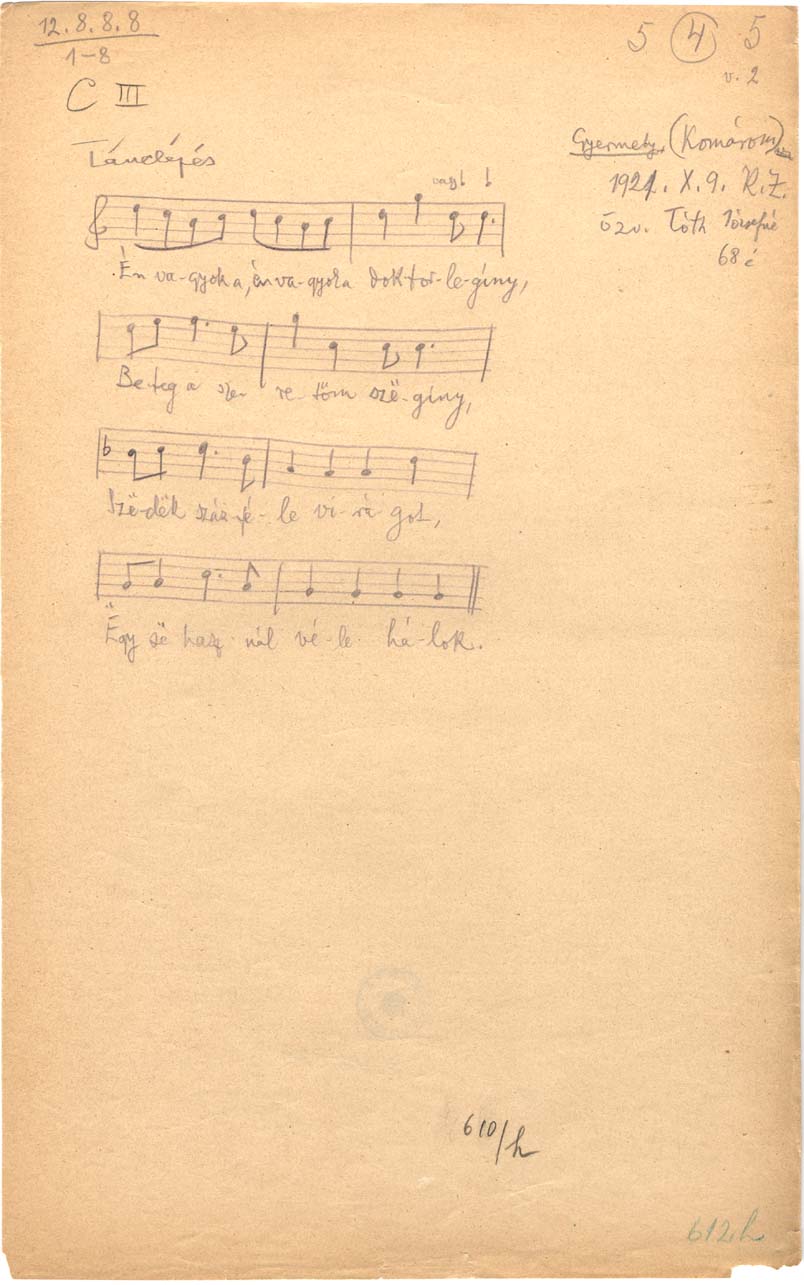 12.8.8.8
1-8
C III
5 4 5
v. 2
Gyermely (Komárom)
1921. X. 9. R.Z.
Özv. Tóth Józsefné
68 é
Tánclépés
vagy
Én va-gyok a, én va-gyok a dok-tor-le-gíny,
Beteg a sze- re-tőm szë-gíny,
Szë-dëk száz-fé-le vi-rá-got,
Ëgy së hasz-nál vé-le há-lok.
610/h
612h